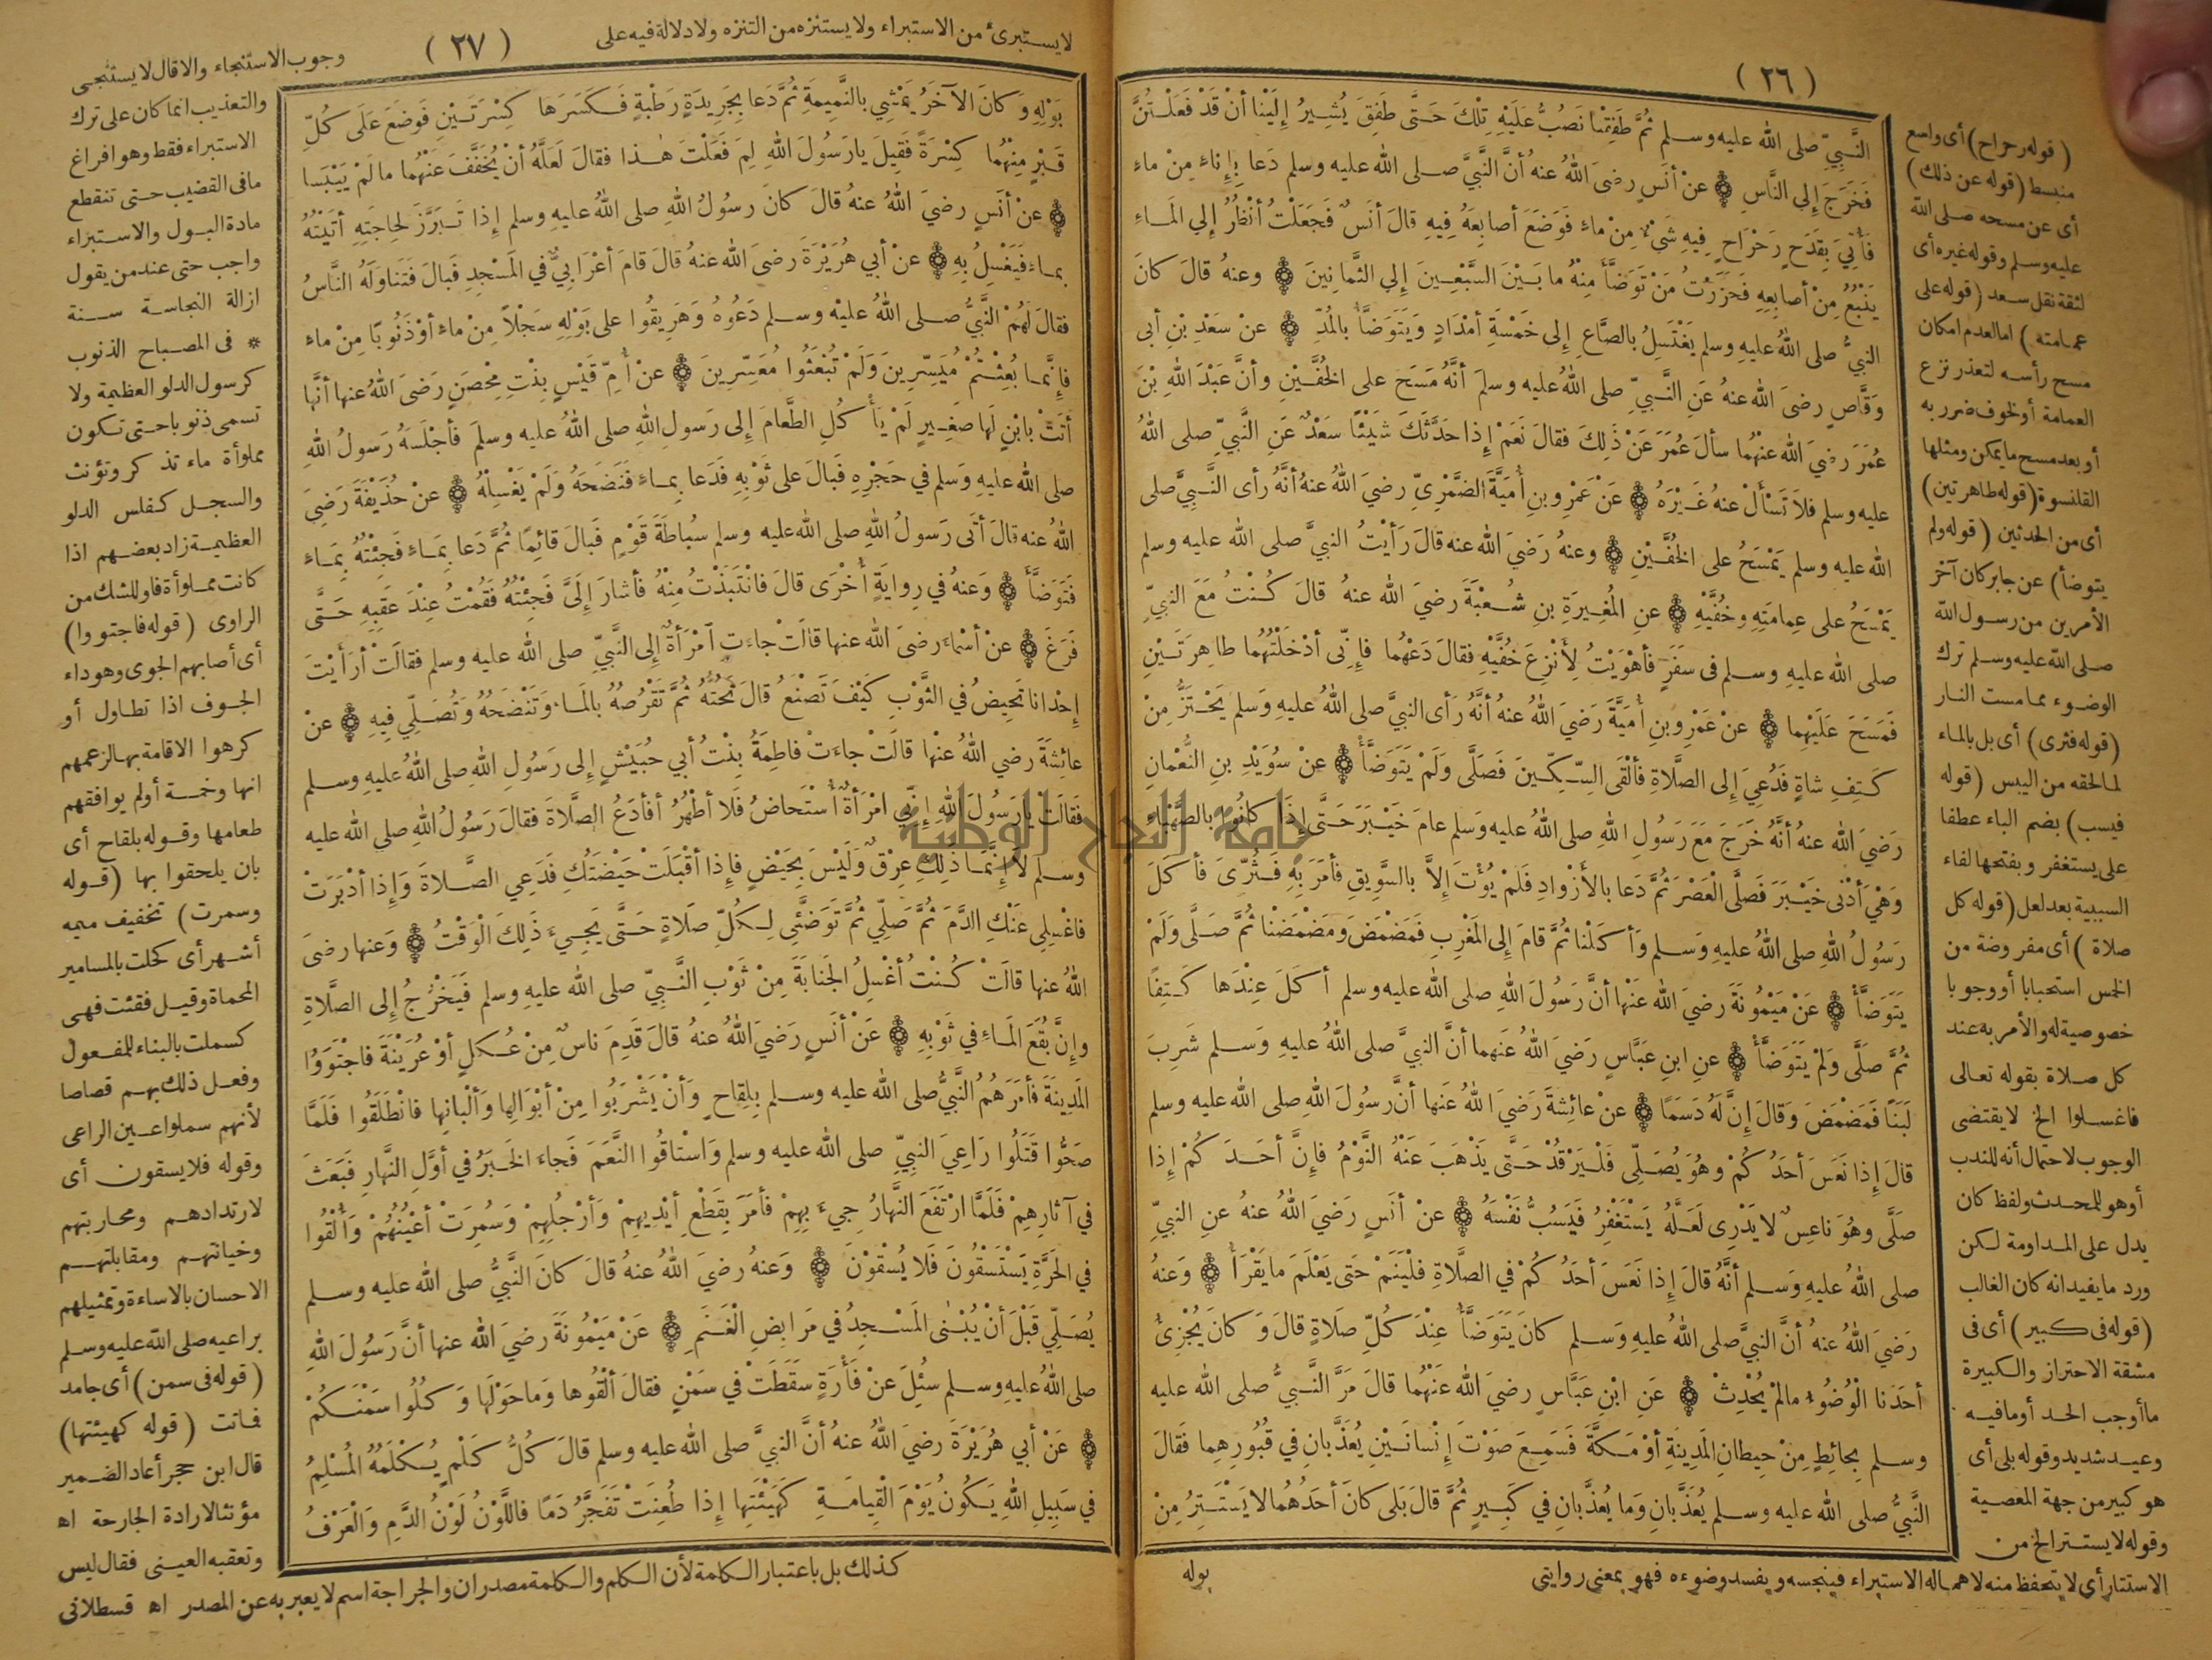 ( ٢٦ )
النَّبِيِّ صلى الله عليه وسلم ثُمَّ طَفِقْنا نَصُبُّ عَلَيْهِ تِلْكَ حَتَّى طَفِقَ يُشِيرُ إِلَيْنا أنْ قَدْ فَعَلْتُنَّ
فَخَرَجَ إلى النَّاسِ عنْ أنَسٍ رضىَ اللهُ عنهُ أنَّ النَّبيَّ صلى الله عليه وسلم دَعا بِإِناءٍ مِنْ ماءٍ
فَأُتِيَ بِقَدَحٍ رَحْرَاحٍ فِيهِ شَىْءٌ مِنْ ماءٍ فَوَضَعَ أصابِعَهُ فِيهِ قالَ أنَسٌ فَجَعَلْتُ أنْظُرُ إلى المَاءِ
يَنْبُعُ مِنْ أصابِعِهِ فَحَزَرْتُ مَنْ تَوَضَّأَ مِنْهُ ما بَيْنَ السَّبْعِينَ إلى الثَّمانِينَ وعنهُ قالَ كانَ
النبيُّ صلى اللهُ عليهِ وسلم يَغْتَسِلُ بالصَّاعِ إلى خَمْسَةِ أمْدَادٍ وَيَتَوَضَّأُ بالمُدِّ عنْ سَعْدِ بْنِ أبى
وَقَّاصٍ رضىَ الله عنهُ عَنِ النَّبيِّ صلى الله عليه وسلمَ أنَّهُ مَسَحَ على الخُفَّيْنِ وأنَّ عَبْدَ اللهِ بْنَ
عُمَرَ رضيَ اللهُ عنْهُما سألَ عُمَرَ عَنْ ذَلِكَ فقالَ نَعَمْ إذا حَدَّثَكَ شَيْئًا سَعْدٌ عَنِ النَّبيِّ صلى اللهُ
عليه وسلم فلاَ تَسْأَلْ عنهُ غَيْرَهُ عَنْ عَمْرِو بنِ أُمَيَّةَ الضَّمْرِيِّ رضيَ اللهُ عنهُ أنَّهُ رأى النَّبيَّ صلى
الله عليه وسلم يَمْسَحُ على الخُفَّيْنِ وعنهُ رَضيَ الله عنه قالَ رَأيْتُ النبيَّ صلى الله عليه وسلم
يَمْسَحُ على عِمامَتِهِ وخُفَّيْهِ عنِ المُغِيرَةِ بنِ شُعْبَةَ رضيَ الله عنهُ قالَ كُنْتُ مَعَ النبيِّ
صلى الله عليهِ وسلم فى سَفَرٍ فأهْوَيْتُ لِأَنْزِعَ خُفَّيْهِ فقالَ دَعْهُما فإنِّى أدْخَلْتُهُما طاهِرَتَيْنِ
فَمَسَحَ عَلَيْهِما عنْ عَمْرِو بنِ أُمَيَّةَ رَضيَ اللهُ عنهُ أنَّهُ رأى النبيَّ صلى اللهُ عليهِ وَسلم يَحْتَزُّ مِنْ
كَتِفِ شاةٍ فَدُعِيَ إلى الصَّلاةِ فألْقَى السِّكِّينَ فَصَلَّى وَلَمْ يَتَوَضَّأْ عنْ سُوَيْدِ بنِ النُّعْمانِ
رَضيَ الله عنهُ أنَّهُ خَرَجَ مَعَ رَسُولِ اللهِ صلى اللهُ عليه وَسلم عامَ خَيْبَرَ حَتَّى إذَا كانُوا بالصَّهْباءِ
وَهْيَ أدْنى خَيْبَرَ فَصَلَّى الْعَصْرَ ثُمَّ دَعا بالأَزْوادِ فَلَمْ يُؤْتَ إلاَّ بالسَّوِيقِ فأمَرَ بِهِ فَثُرِّىَ فأكَلَ
رَسُولُ اللهِ صلى اللهُ عليهِ وَسلم وَأكَلْنا ثُمَّ قامَ إلى المَغْرِبِ فَمَضْمَضَ وَمَضْمَضْنا ثُمَّ صَلَّى وَلَمْ
يَتَوَضَّأْ عَنْ مَيْمُونَةَ رَضيَ الله عَنْها أنَّ رَسُولَ اللهِ صلى الله عليه وسلم أكَلَ عِنْدَها كَتِفًا
ثُمَّ صَلَّى وَلَمْ يَتَوَضَّأْ عنِ ابنِ عَبَّاسٍ رَضيَ اللهُ عَنهما أنَّ النبيَّ صلى اللهُ عليهِ وَسلم شَرِبَ
لَبَنًا فَمَضْمَضَ وَقالَ إِنَّ لَهُ دَسَمًا عنْ عائِشةَ رَضيَ اللهُ عَنها أنَّ رسُولَ اللهِ صلى الله عليه وسلم
قالَ إذا نَعَسَ أحَدُكُمْ وهُوَ يُصَلِّى فَلْيَرْقُدْ حَتَّى يَذْهَبَ عَنْهُ النَّوْمُ فإنَّ أحَدَكُمْ إذا
صَلَّى وهُوَ ناعِسٌ لا يَدْرِى لَعَلَّهُ يَسْتَغْفِرُ فَيَسُبُّ نَفْسَهُ عنْ أنَسٍ رَضيَ اللهُ عنهُ عنِ النبيِّ
صلى اللهُ عليهِ وَسلم أنَّهُ قالَ إذا نَعَسَ أحَدُكُمْ في الصلاةِ فلْيَنَمْ حَتى يَعْلَمَ ما يَقْرَأُ وَعنهُ
رَضيَ اللهُ عنهُ أنَّ النبيَّ صلى اللهُ عليهِ وَسلم كانَ يَتَوَضَّأُ عِنْدَ كُلِّ صلاةٍ قالَ وَكانَ يُجْزِئُ
أحَدَنا الْوُضُوءُ مالمْ يُحْدِثْ عَنِ ابْنِ عَبَّاسٍ رضيَ الله عَنْهُما قالَ مَرَّ النَّبيُّ صلى الله عليه
وسلم بحائِطٍ مِنْ حِيطانِ المَدِينَةِ أوْ مَكَّةَ فَسَمِعَ صَوْتَ إنْسانَيْنِ يُعَذَّبانِ في قُبُورِهِما فَقالَ
النَّبيُّ صلى الله عليه وسلم يُعَذَّبانِ وَما يُعذَّبانِ في كَبِيرٍ ثُمَّ قالَ بَلى كانَ أحَدُهُما لا يَسْتَتِرُ مِنْ
(قوله رحراح) أى واسع
منبسط (قوله عن ذلك)
أى عن مسحه صلى الله
عليه وسلم وقوله غيره أى
لثقة نقل سعد (قوله على
عمامته) اما لعدم امكان
مسح رأسه لتعذر نزع
العمامة أو لخوف ضرر به
أو بعد مسح ما يمكن ومثلها
القلنسوة (قوله طاهرتين)
أى من الحدثين (قوله ولم
يتوضأ) عن جابر كان آخر
الأمرين من رسول الله
صلى الله عليه وسلم ترك
الوضوء مما مست النار
(قوله فثرى) أى بل بالماء
لما لحقه من اليبس (قوله
فيسب) بضم الباء عطفا
على يستغفر وبفتحها لفاء
السببية بعد لعل (قوله كل
صلاة) أى مفروضة من
الخمس استحبابا أو وجوبا
خصوصية له والأمر به عند
كل صلاة بقوله تعالى
فاغسلوا الخ لا يقتضى
الوجوب لاحتمال أنه للندب
أو هو للمحدث ولفظ كان
يدل على المداومة لكن
ورد ما يفيد انه كان الغالب
(قوله فى كبير) أى فى
مشقة الاحتراز والكبيرة
ما أوجب الحد أو ما فيه
وعيد شديد وقوله بلى أى
هو كبير من جهة المعصية
وقوله لا يستتر الخ من
الاستتار أى لا يتحفظ منه لاهماله الاستبراء فينجسه ويفسد وضوءه فهو بمعنى روايتى
بوله
لا يستبرئ من الاستبراء ولا يستنزه من التنزه ولا دلالة فيه على
( ٢٧ )
وجوب الاستنجاء والا قال لا يستنجى
بَوْلِهِ وَكانَ الآخَرُ يَمْشِي بالنَّمِيمَةِ ثُمَّ دَعا بِجَرِيدَةٍ رَطْبةٍ فَكَسَرَها كِسْرَتَيْنِ فَوَضَعَ عَلَى كُلِّ
قَبْرٍ مِنْهُما كِسْرَةً فَقِيلَ يا رَسُولَ اللهِ لِمَ فَعَلْتَ هذا فقالَ لَعَلَّهُ أنْ يُخَفَّفَ عَنْهُما ما لَمْ يَيْبَسَا
عنْ أنَسٍ رضيَ اللهُ عنهُ قالَ كانَ رسُولُ اللهِ صلى اللهُ عليهِ وسلم إذا تَبَرَّزَ لِحاجَتِهِ أتَيْتُهُ
بماءٍ فَيَغْسِلُ بِهِ عنْ أبي هُرَيْرَةَ رضىَ الله عنهُ قالَ قامَ أعْرَابيٌّ في المَسْجِدِ فَبالَ فَتَناوَلَهُ النَّاسُ
فقالَ لَهُمْ النَّبيُّ صلى اللهُ عليْهِ وسلم دَعُوهُ وَهَرِيقُوا على بَوْلِهِ سَجْلاً مِنْ ماءٍ أوْ ذَنُوبًا مِنْ ماءٍ
فإنَّما بُعِثْتُمْ مُيَسِّرِينَ وَلَمْ تُبْعَثُوا مُعَسِّرِينَ عنْ أُمِّ قَيْسٍ بِنْتِ مِحْصَنٍ رَضىَ اللهُ عنها أنَّها
أتَتْ بابْنٍ لَها صَغِيرٍ لَمْ يَأْكُلِ الطَّعامَ إلى رَسولِ اللهِ صلى اللهُ عليه وسلمَ فأجْلَسَهُ رَسولُ اللهِ
صلى الله عليهِ وَسلم في حَجْرِهِ فَبالَ على ثَوْبِهِ فَدَعا بماءٍ فَنَضَحَهُ وَلَمْ يَغْسِلْهُ عنْ حُذَيْفَةَ رَضِيَ
اللهُ عنه قالَ أتَى رَسولُ اللهِ صلى الله عليه وسلم سُباطَةَ قَوْمٍ فَبالَ قائِمًا ثُمَّ دَعا بمَاءٍ فَجِئْتُهُ بمَاءٍ
فَتَوَضَّأَ وَعنهُ في رِوايَةٍ أُخْرَى قالَ فانْتَبَذْتُ مِنْهُ فأشارَ إلَىَّ فَجِئْتُهُ فَقُمْتُ عِنْدَ عَقِبِهِ حَتَّى
فَرَغَ عنْ أسْماءَ رضىَ الله عنها قالَتْ جاءَتِ امْرَأةٌ إلى النَّبيِّ صلى الله عليه وسلم فقالَتْ أرَأيْتَ
إحْدانا تَحِيضُ في الثَّوْبِ كَيْفَ تَصْنَعُ قالَ تَحُتُّهُ ثُمَّ تَقْرُصُهُ بالمَاءِ وَتَنْضَحُهُ وَتُصَلِّي فِيهِ عنْ
عائِشَةَ رضي اللهُ عنْها قالَتْ جاءَتْ فاطِمَةُ بِنْتُ أبي حُبَيْشٍ إلى رَسُولِ اللهِ صلى اللهُ عليهِ وسلم
فَقالَتْ يا رَسُولَ اللهِ إنِّي امْرَأةٌ أُسْتَحاضُ فَلا أطْهُرُ أفأدَعُ الصَّلاةَ فقالَ رَسُولُ اللهِ صلى الله عليه
وسلم لا إنَّما ذَلِكِ عِرْقٌ وَلَيْسَ بِحَيْضٍ فإذا أقْبَلَتْ حَيْضَتُكِ فَدَعِي الصَّلاةَ وَإذا أدْبَرَتْ
فاغْسِلِي عَنْكِ الدَّمَ ثُمَّ صَلِّي ثُمَّ تَوَضَّئِي لِكُلِّ صَلاةٍ حَتَّى يَجِيءَ ذَلِكَ الْوَقْتُ وَعنها رضىَ
اللهُ عنها قالَتْ كُنْتُ أغْسِلُ الجَنابَةَ مِنْ ثَوْبِ النَّبيِّ صلى الله عليهِ وسلم فَيَخْرُجُ إلى الصَّلاةِ
وإنَّ بُقَعَ المَاءِ في ثَوْبِهِ عَنْ أنَسٍ رَضيَ اللهُ عنهُ قالَ قَدِمَ ناسٌ مِنْ عُكلٍ أوْ عُرَيْنَةَ فاجْتَوَوُا
المَدِينَةَ فأمَرَهُمُ النَّبيُّ صلى الله عليه وسلم بلِقاحٍ وَأنْ يَشْرَبُوا مِنْ أبْوَالِها وَألْبانِها فانْطَلَقُوا فَلَمَّا
صَحُّوا قَتَلُوا رَاعِيَ النبيِّ صلى الله عليه وسلم وَاسْتاقُوا النَّعَمَ فَجاءَ الخَبَرُ في أوَّلِ النَّهارِ فَبَعَثَ
في آثارِهِمْ فَلَمَّا ارْتَفَعَ النَّهارُ جِيءَ بِهِمْ فأمَرَ بِقَطْعِ أيْدِيهِمْ وَأرْجُلِهِمْ وَسُمِرَتْ أعْيُنُهُمْ وَأُلْقُوا
في الحَرَّةِ يَسْتَسْقُونَ فَلا يُسْقَوْنَ وَعنهُ رضيَ اللهُ عنهُ قالَ كانَ النَّبيُّ صلى الله عليه وسلم
يُصَلِّي قَبْلَ أنْ يُبْنى المَسْجِدُ في مَرَابِضِ الْغَنَمِ عَنْ مَيْمُونَةَ رضيَ الله عنها أنَّ رَسُولَ اللهِ
صلى اللهُ عليهِ وسلم سئِلَ عَنْ فَأْرَةٍ سقَطَتْ في سَمْنٍ فقالَ ألْقُوها وَما حَوْلَها وَكلُوا سَمْنَكُمْ
عَنْ أبي هُرَيْرَةَ رضيَ اللهُ عنهُ أنَّ النبيَّ صلى الله عليه وسلم قالَ كُلُّ كَلْمٍ يُكْلَمُهُ المُسْلِمُ
في سَبِيلِ اللهِ يَكُونُ يَوْمَ الْقِيامَةِ كَهَيْئَتِها إذا طُعِنَتْ تَفَجَّرُ دَمًا فاللَّوْنُ لَوْنُ الدَّمِ وَالْعَرْفُ
والتعذيب انما كان على ترك
الاستبراء فقط وهو افراغ
ما فى القضيب حتى تنقطع
مادة البول والاستبراء
واجب حتى عند من يقول
ازالة النجاسة سنة
* فى المصباح الذنوب
كرسول الدلو العظيمة ولا
تسمى ذنوبا حتى تكون
مملوأة ماء تذكر وتؤنث
والسجل كفلس الدلو
العظيمة زاد بعضهم اذا
كانت مملوأة فاو للشك من
الراوى (قوله فاجتووا)
أى أصابهم الجوى وهو داء
الجوف اذا تطاول أو
كرهوا الاقامة بها لزعمهم
انها وخمة أو لم يوافقهم
طعامها وقوله بلقاح أى
بان يلحقوا بها (قوله
وسمرت) تخفيف ميمه
أشهر أى كحلت بالمسامير
المحماة وقيل فقئت فهى
كسملت بالبناء للمفعول
وفعل ذلك بهم قصاصا
لأنهم سملوا عين الراعى
وقوله فلا يسقون أى
لارتدادهم ومحاربتهم
وخيانتهم ومقابلتهم
الاحسان بالاساءة وتمثيلهم
براعيه صلى الله عليه وسلم
(قوله فى سمن) أى جامد
فماتت (قوله كهيئتها)
قال ابن حجر أعاد الضمير
مؤنثا لارادة الجارحة اه
وتعقبه العينى فقال ليس
كذلك بل باعتبار الكلمة لأن الكلم والكلمة مصدران والجراحة اسم لا يعبر به عن المصدر اه قسطلانى
جامعة النجاح الوطنية